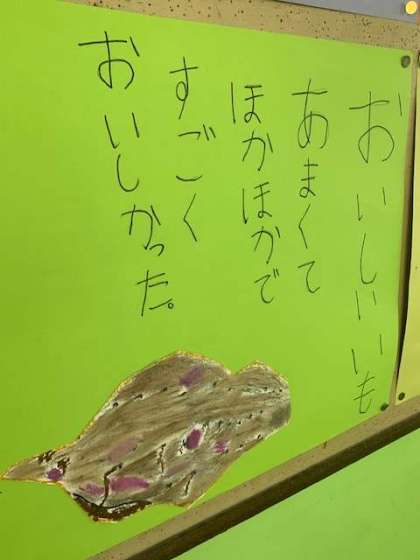 おいしいいも
あまくて
ほかほかで
すごく
おいしかった。